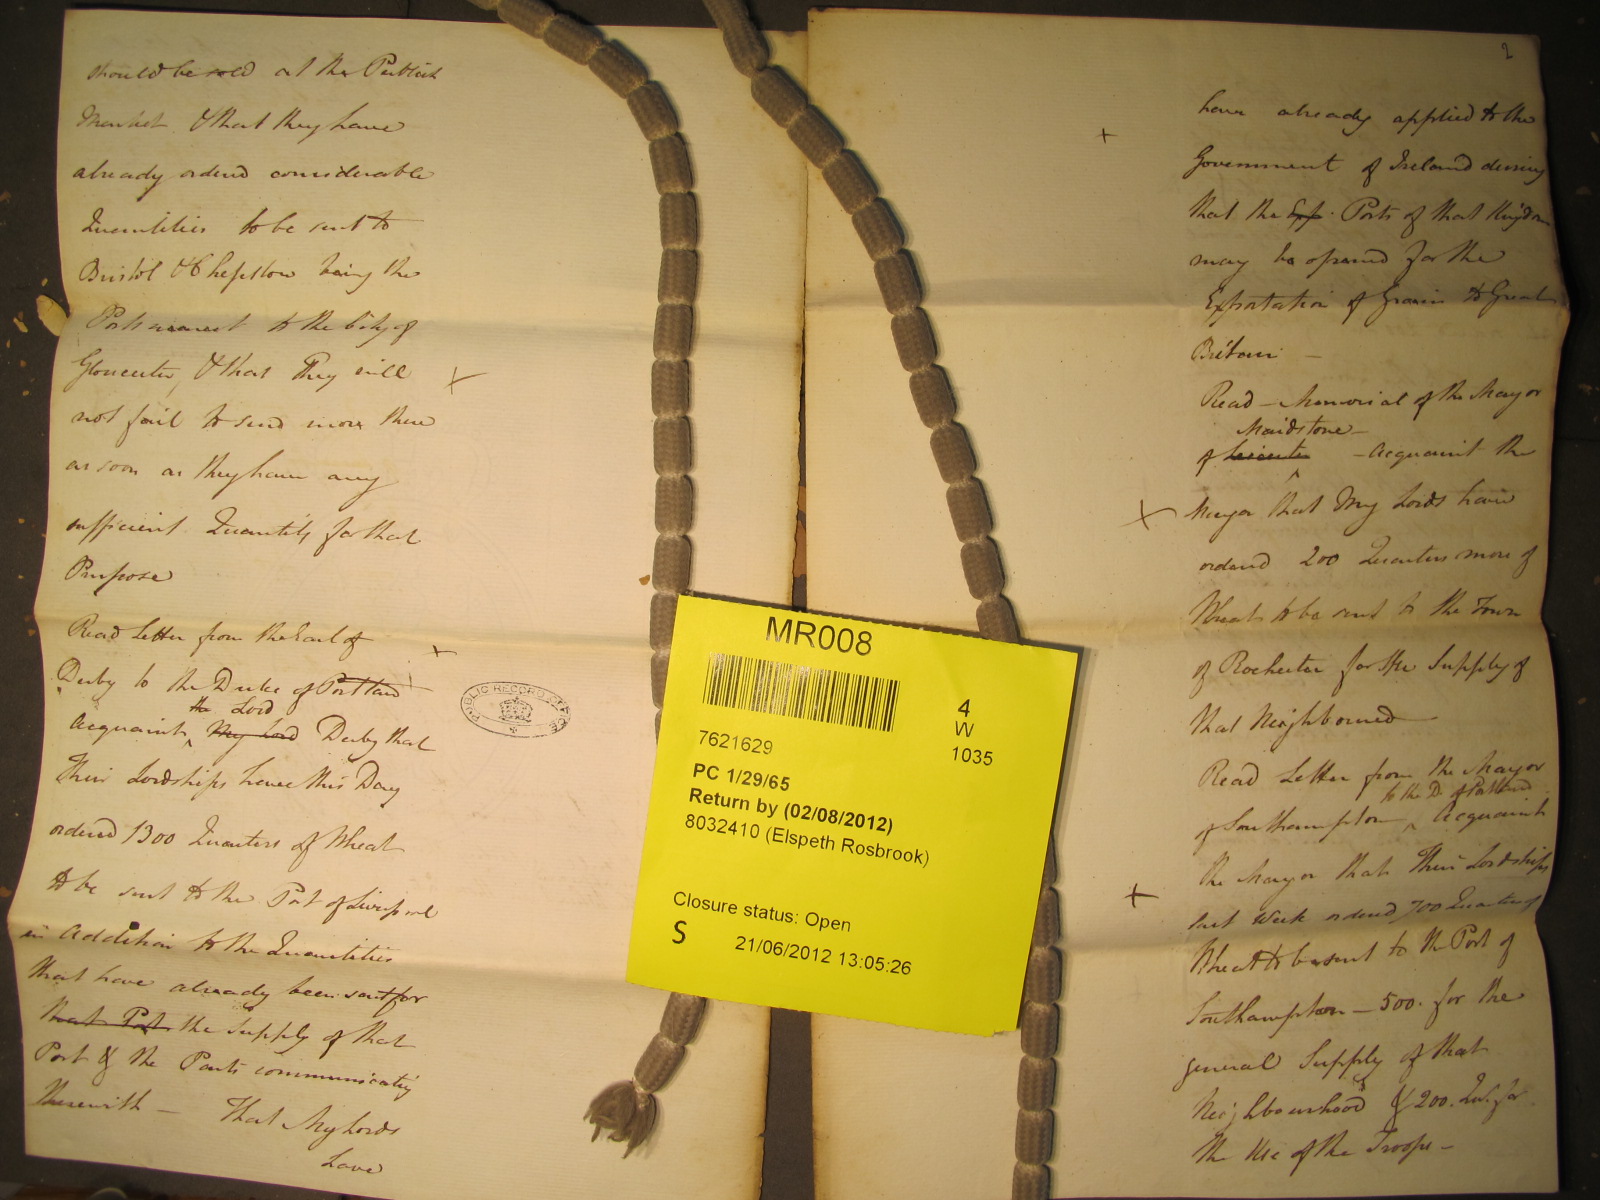 should be sold at the Publick
Market & that they have
already orderd considerable
Quantities to be sent to
Bristol & Chepstow being the
Ports nearest to the City of
Gloucester, & that They will
not fail to send more there
as soon as they have any
sufficient Quantity for that
Purpose
Read Letter from the Earl of
Derby to the Duke of Portland
the Lord
Acquaint My Lord Derby that
Their Lordships have this Day
orderd 1300 Quarters of Wheat
to be sent to the Port of Liverpool
in Addition to the Quantities
that have already been sent for
that Port the Supply of that
Port & the Parts communicating
therewith — That My Lords
have
PUBLIC RECORD OFFICE
2
have already applied to the
Government of Ireland desiring
that the Exp. Ports of that Kingdom
may be opened for the
Exportation of Grain to Great
Britain —
Read — Memorial of the Mayor
Maidstone —
of Leicester — Acquaint the
Mayor that My Lords have
orderd 200 Quarters more of
Wheat to be sent to the Town
of Rochester for the Supply of
that Neighbourhood
Read Letter from the Mayor
to the D. of Portland
of Southampton Acquaint
the Mayor that Their Lordships
last Week orderd 700 Quarters
Wheat to be sent to the Port of
Southampton — 500. for the
general Supply of that
Neighbourhood & 200. Qrs. for
the Use of the Troops —
MR008
4
W
1035
7621629
PC 1/29/65
Return by (02/08/2012)
8032410 (Elspeth Rosbrook)
Closure status: Open
S
21/06/2012 13:05:26